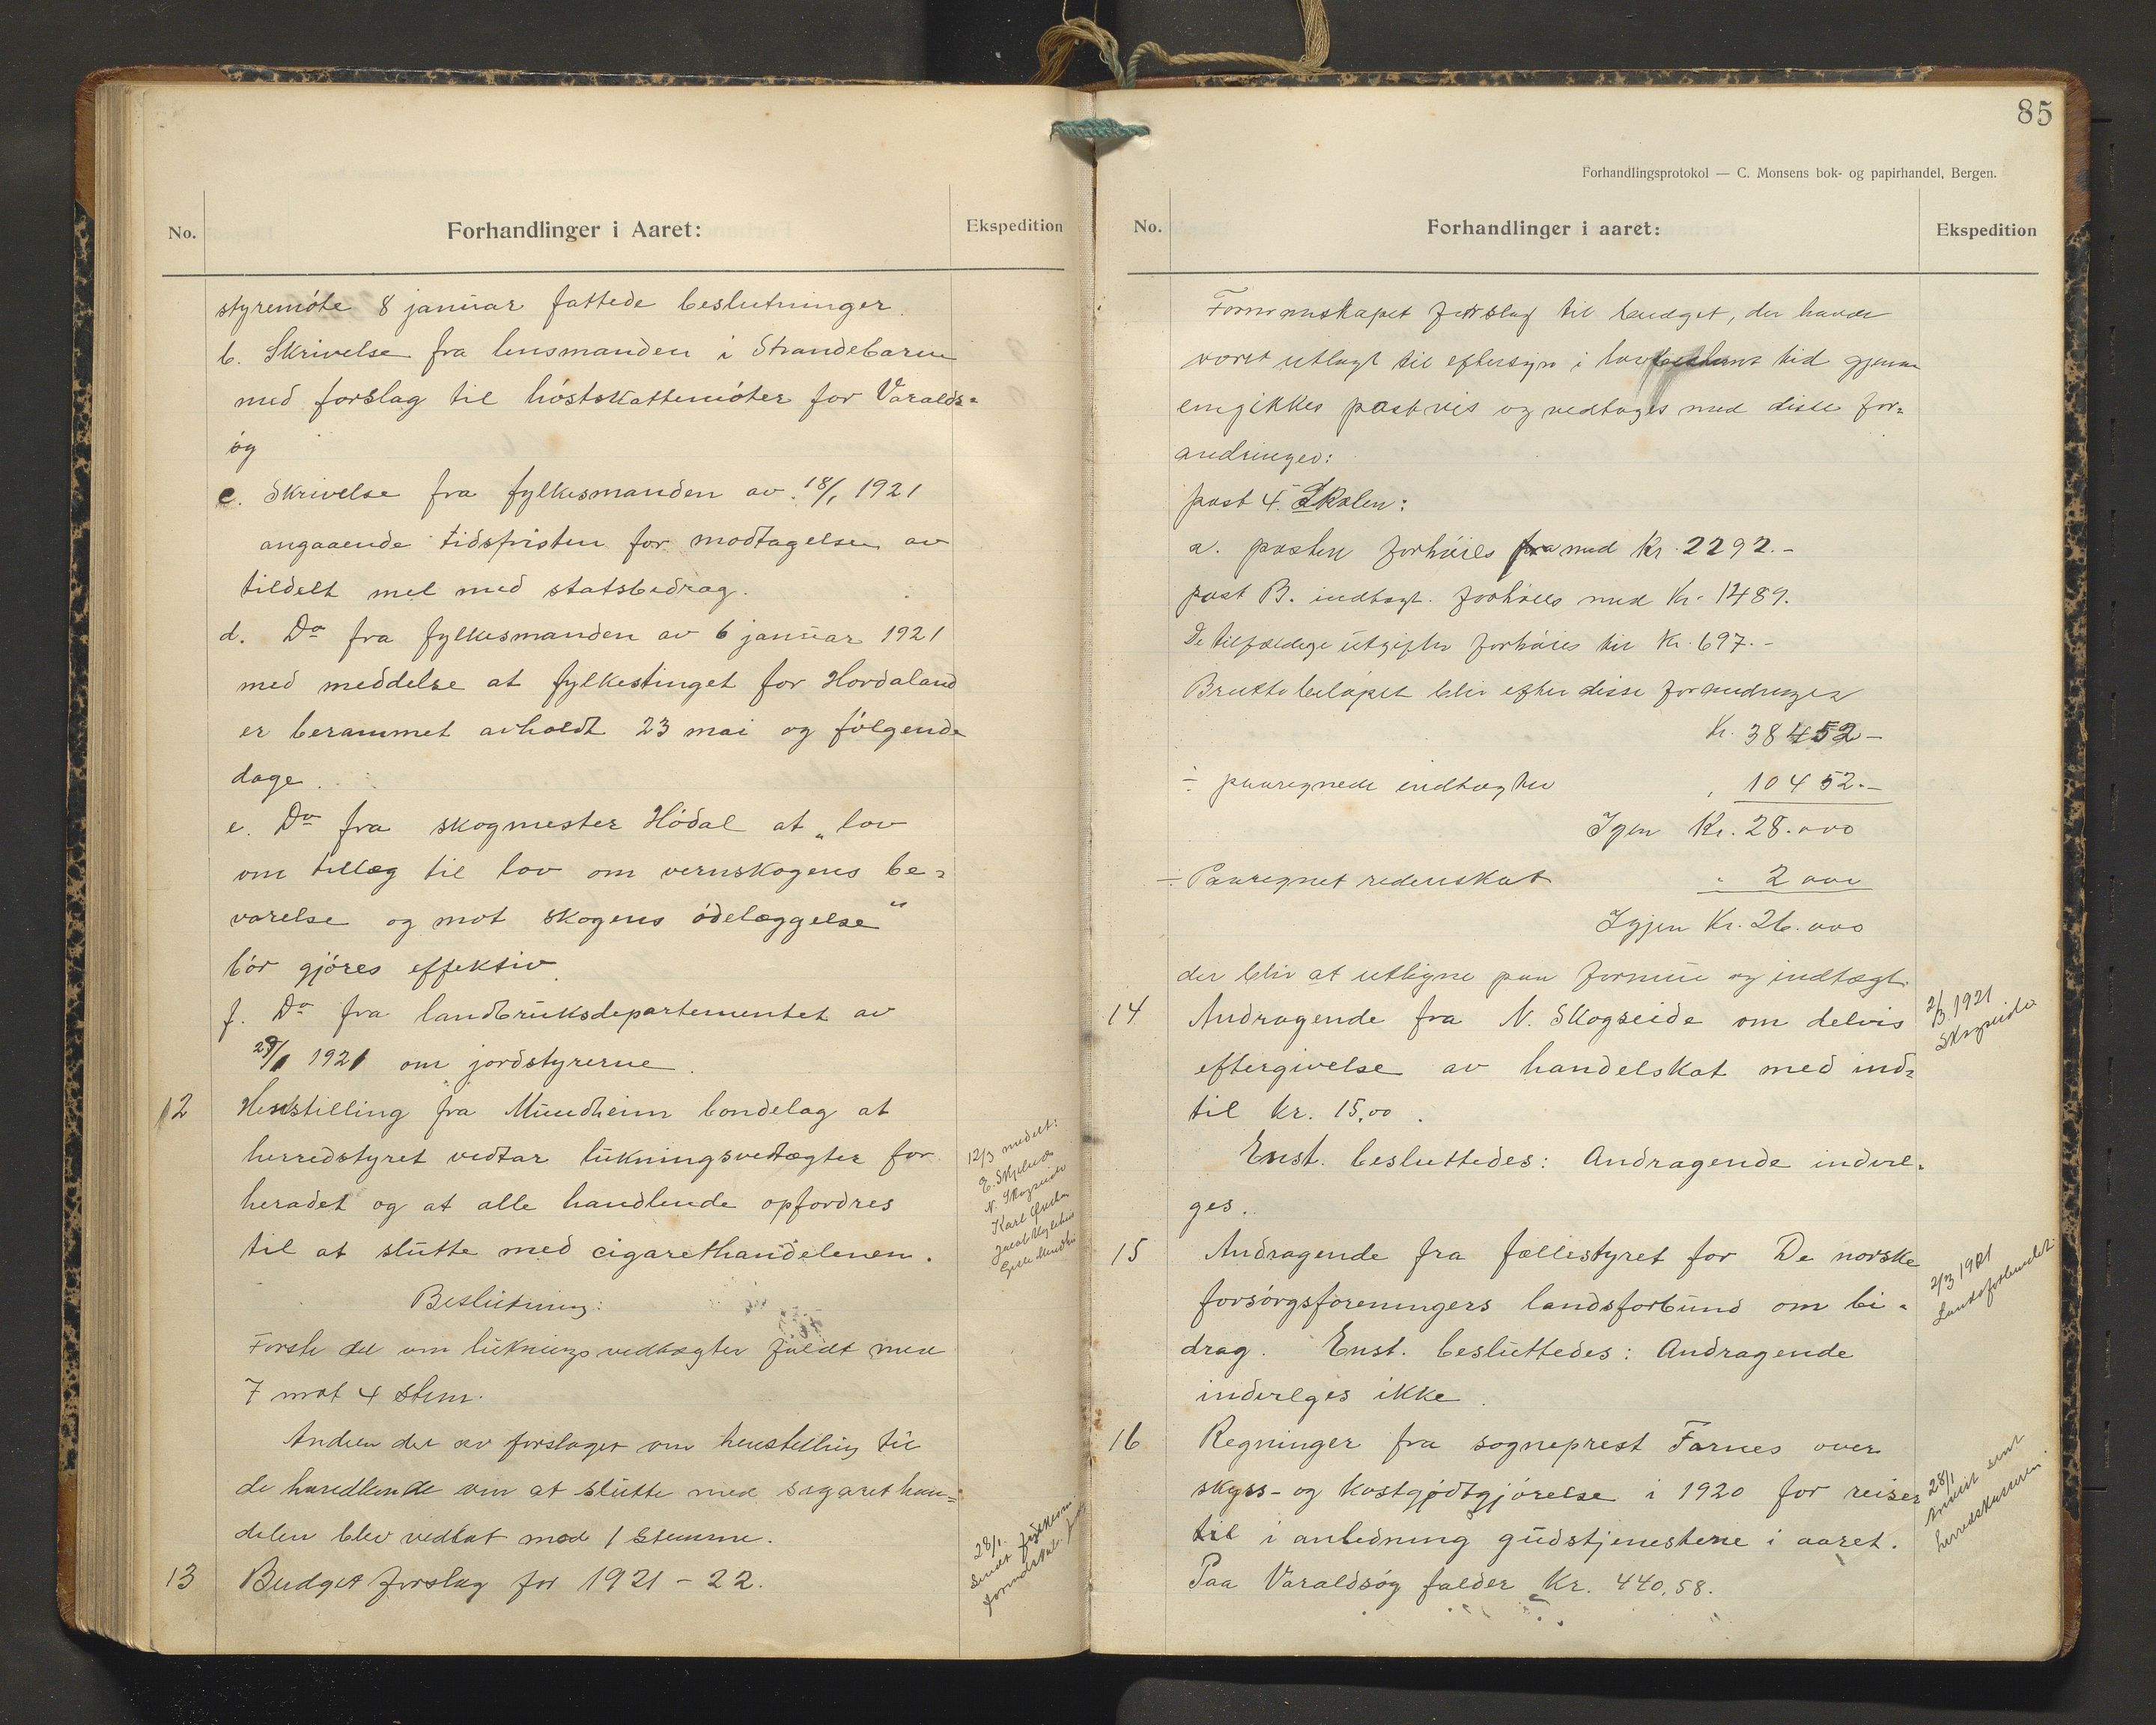 No.
Forhandlinger i Aaret:
Ekspedition
styremöte 8 januar fattede beslutninger.
b. Skrivelse fra lensmanden i Strandebarm
med forslag til höstskattemöter for Varalds=
ög
c. Skrivelse fra fylkesmanden av 18/1 1921
angaaende tidsfristen for modtagelsen av
tildelt mel med statsbedrag.
d. Do fra fylkesmanden av 6 januar 1921
med meddelse at fylkestinget for Hordaland
er berammet avholdt 23 mai og fölgende
dage.
e. Do fra skogmester Hödal at „lov
om tillæg til lov om vernskogens be=
varelse og mot skogens ödelæggelse“
bör gjöres effektiv.
f. Do fra landbruksdepartementet av
29/1 1921 om jordstyrerne.
12 Henstilling fra Mundheim bondelag at
herredstyret vedtar lukningsvedtægter for
heradet og at alle handlende opfordres
til at slutte med cigarethandelenen.
12/3 medelt:
N. Skogseide
Karl
Beslutning:
Förste del om lukningsvedtægter faldt med
7 mot 4 stem.
Andren del av forslaget om henstilling til
de handlende om at slutte med sigarethan=
delen blev vedtat mod 1 stemme.
13 Budget forslag for 1921 - 22.
28/1.
Sendt fylkesm.
85
Forhandlingsprotokol — C. Monsens bok- og papirhandel, Bergen.
No.
Forhandlinger i aaret:
Ekspedition
Formannskapet forslag til budget, der havde
været utlagt til eftersyn i lovbestemt tid gjenne
emgikkes postvis og vedtoges med disse for=
andringer:
post 4. Skolen:
a. posten forhöies med Kr. 2292.-
post B. indtægt. forhöies med Kr. 1489.
De tilfældige utgifter forhöies til Kr. 697.-
Bruttobelöpet blir efter disse forandringer
Kr. 38452 -
÷ paaregnede indtægter " 10452.-
Igjen Kr. 28.000
÷ Paaregnet redenskat " 2000
Igjen Kr. 26.000
der blir at utligne paa formue og indtægt.
14 Andragende fra N. Skogseide om delvis
eftergivelse av handelskat med ind=
til kr. 15,00.
2/3 1921
Skogseide
Enst. besluttedes: Andragende indvil=
ges.
15 Andragende fra fællestyret for De norske
forsörgsföreningers landsforbund om bi=
drag. Enst. besluttedes: Andragende
indvilges ikke.
2/3 1921
Landsforbundet.
16 Regninger fra sogneprest Farnes over
skyss- og kostgodtgjörelse i 1920 for reiser
til i anledning gudstjenestene i aaret.
Paa Varaldsög falder Kr. 440,58.
28/1
sent
herredskasseren.